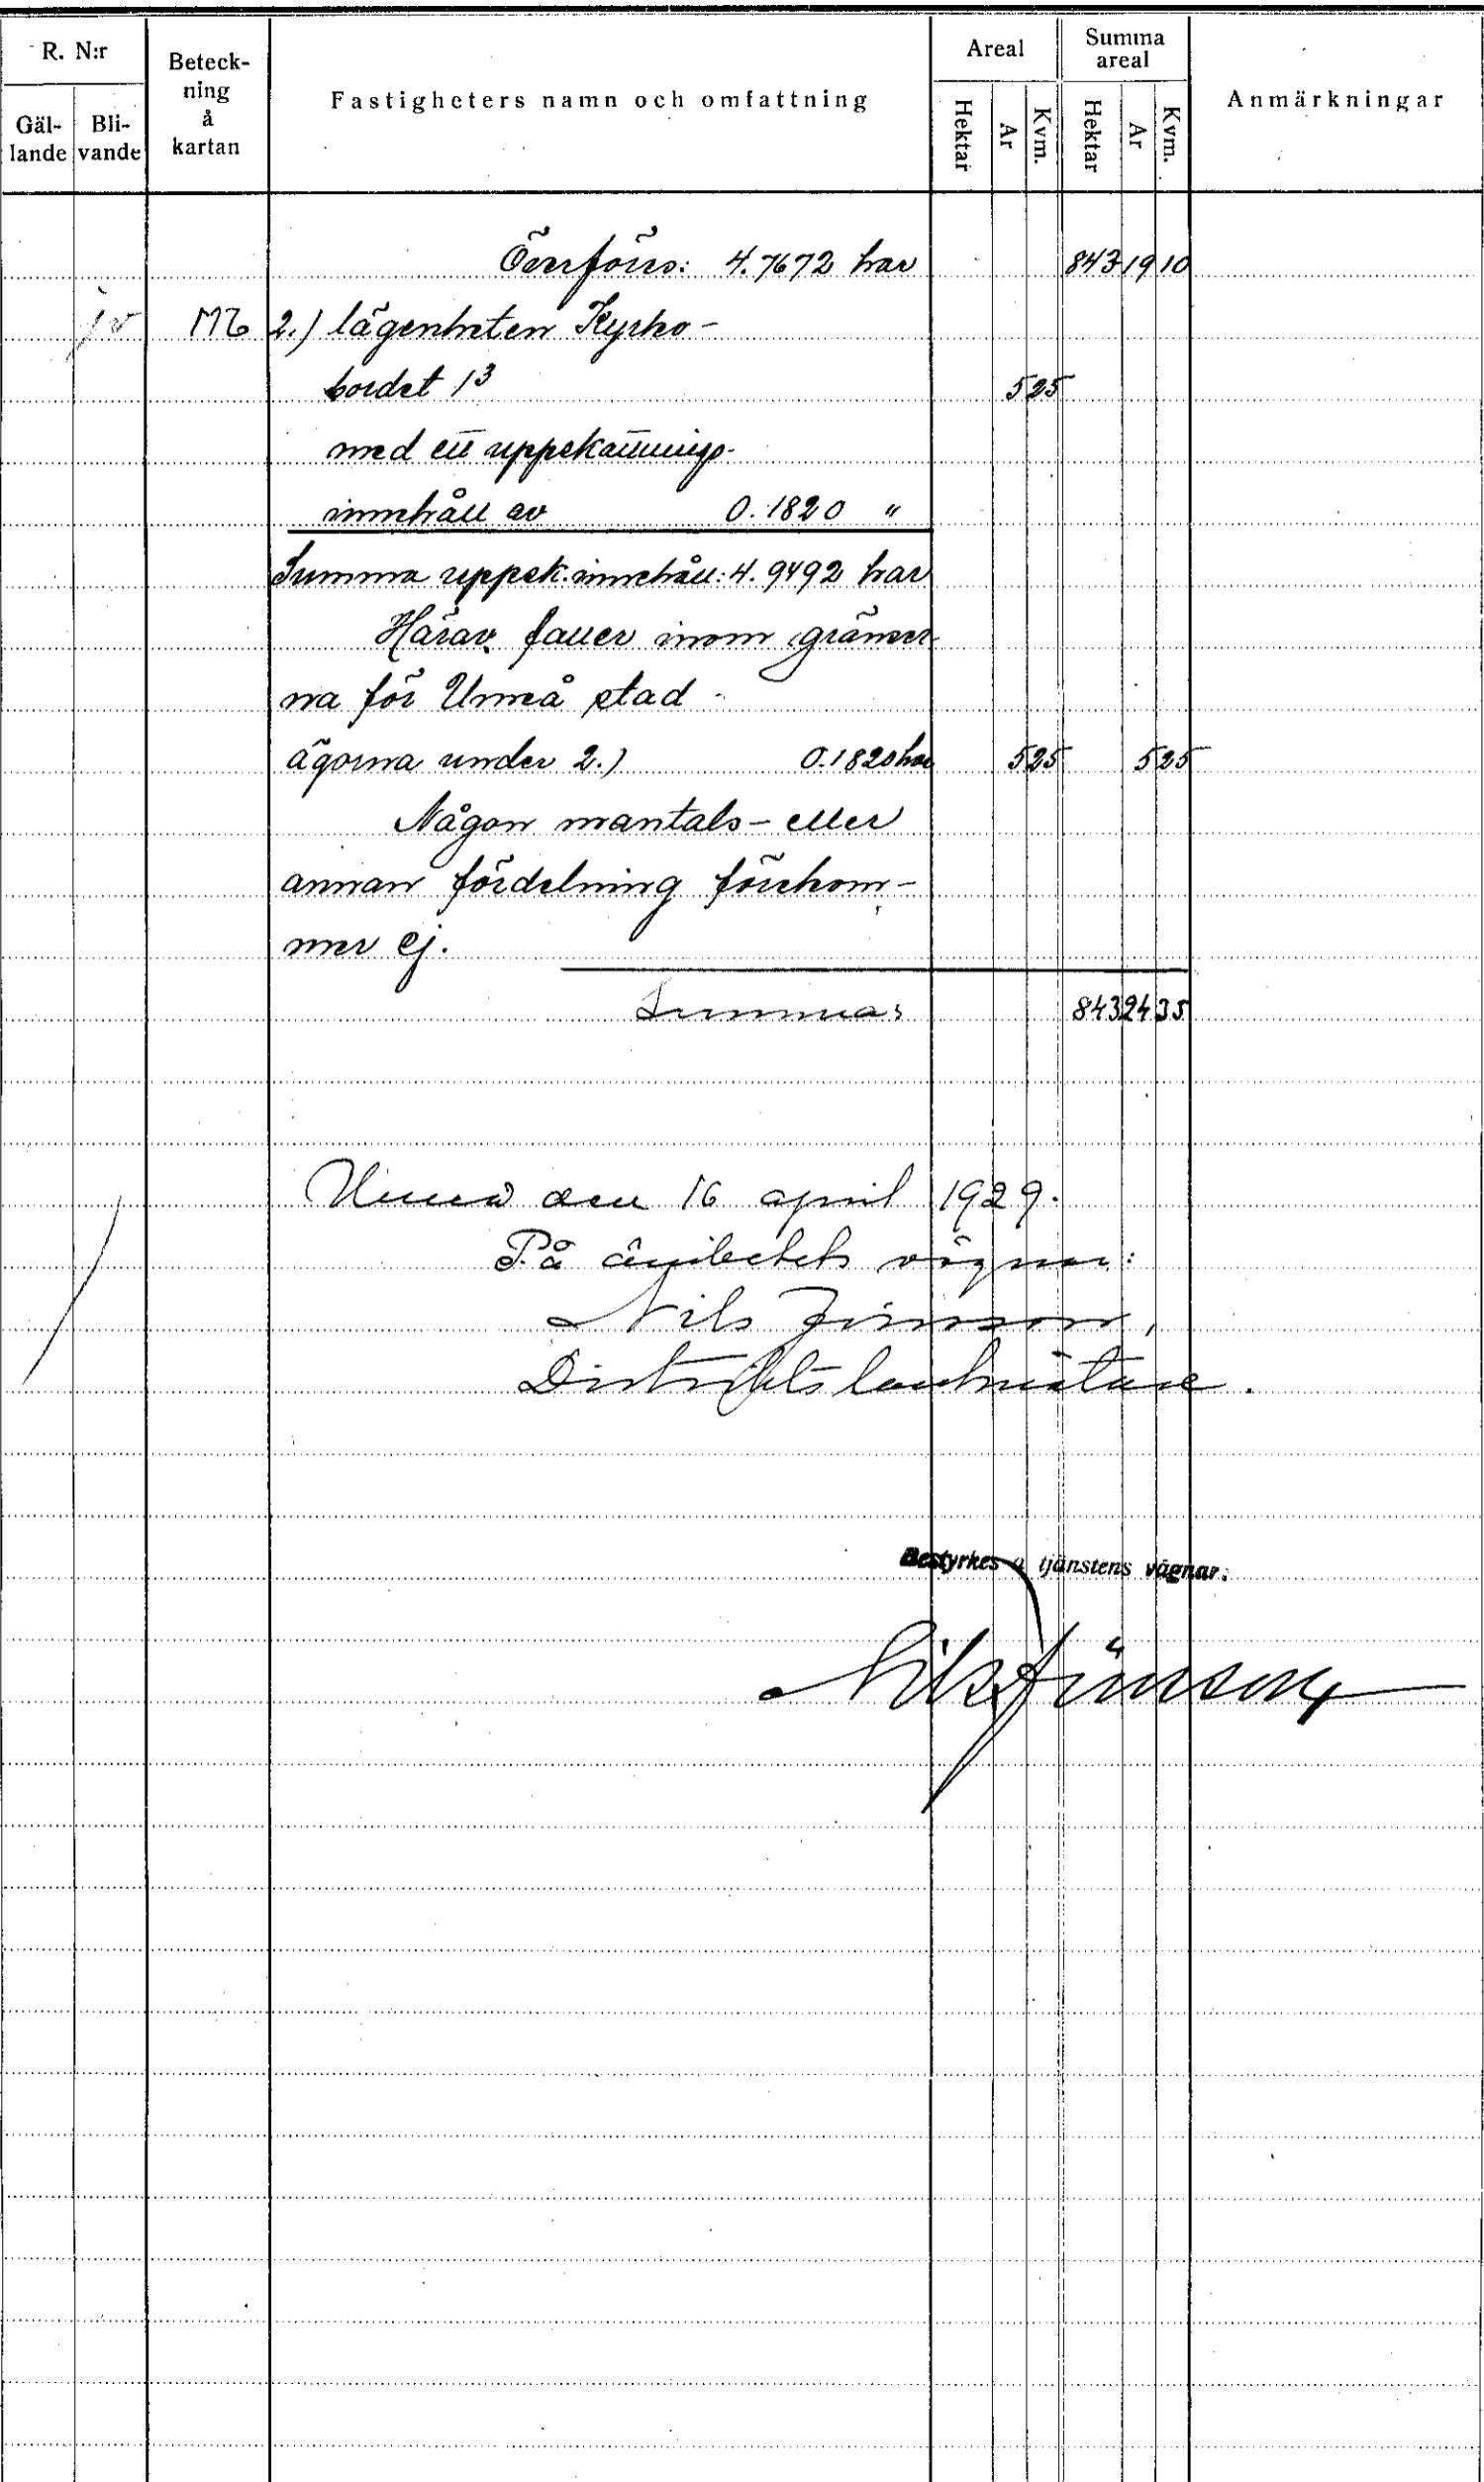 R. N:r
Gäl-
lande
Bli-
vande
Beteck-
ning
å
kartan
Fastigheters namn och omfattning
Areal
Hektar Ar Kvm.
Summa
areal
Hektar Ar Kvm.
Anmärkningar
Överförs: 4.7672 har 843 19 10
M6 2.) lägenheten Kyrko-
bordet 1³ 5 25
med ett uppskattnings-
innehåll av 0.1820 "
Summa uppsk. innehåll: 4.9492 har
Härav faller inom gränser-
na för Umeå stad
ägorna under 2.) 0.1820 har 5 25 5 25
Någon mantals- eller
annan fördelning förekom-
mer ej.
Summa: 843 24 35
Umeå den 16 april 1929.
På ämbetets vägnar:
Nils
Distriktslantmätare.
Bestyrkes å tjänstens vägnar:
Nils